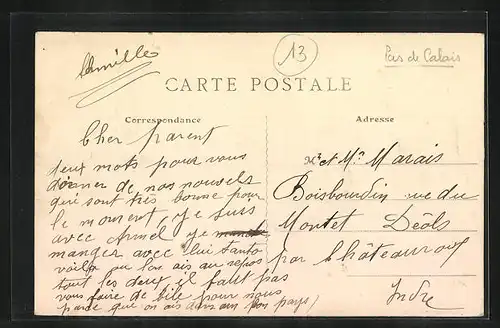 Camille
13
Pas de Calais
CARTE POSTALE
Correspondance
Adresse
Cher parent
deux mots pour vous
donner de nos nouvels
qui sont très bonne pour
le moment, je suis
avec Armel je
manger avec lui tantot
voila ou lon ais au repos
tout les deux il falit pas
vous faire de bile pour nous
parce que on ais dans un bon pays)
Mr et Me Marais
Boisbourdin rue du
Montet Déols
par Châteauroux
Indre